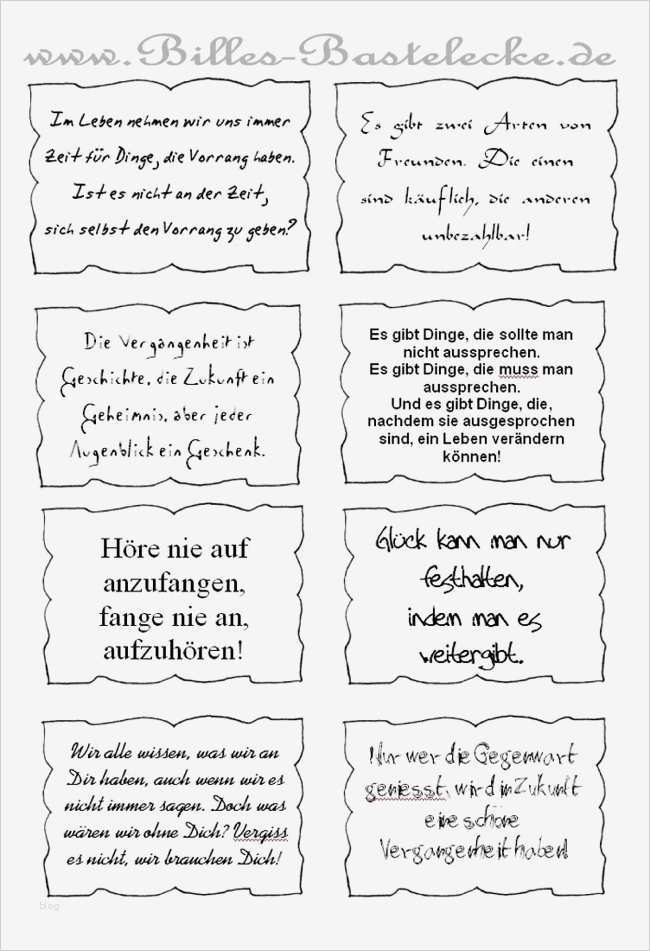 www.Billes-Bastelecke.de
Im Leben nehmen wir uns immer
Zeit für Dinge, die Vorrang haben.
Ist es nicht an der Zeit,
sich selbst den Vorrang zu geben?
Es gibt zwei Arten von
Freunden. Die einen
sind käuflich, die anderen
unbezahlbar!
Die Vergangenheit ist
Geschichte, die Zukunft ein
Geheimnis, aber jeder
Augenblick ein Geschenk.
Es gibt Dinge, die sollte man
nicht aussprechen.
Es gibt Dinge, die muss man
aussprechen.
Und es gibt Dinge, die,
nachdem sie ausgesprochen
sind, ein Leben verändern
können!
Höre nie auf
anzufangen,
fange nie an,
aufzuhören!
Glück kann man nur
festhalten,
indem man es
weitergibt.
Wir alle wissen, was wir an
Dir haben, auch wenn wir es
nicht immer sagen. Doch was
wären wir ohne Dich? Vergiss
es nicht, wir brauchen Dich!
Nur wer die Gegenwart
geniesst, wird in Zukunft
eine schöne
Vergangenheit haben!
blog